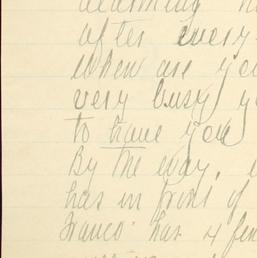 after every
when are you
very busy y
to have you
By the way,
has in front of
Franco has 4 fen